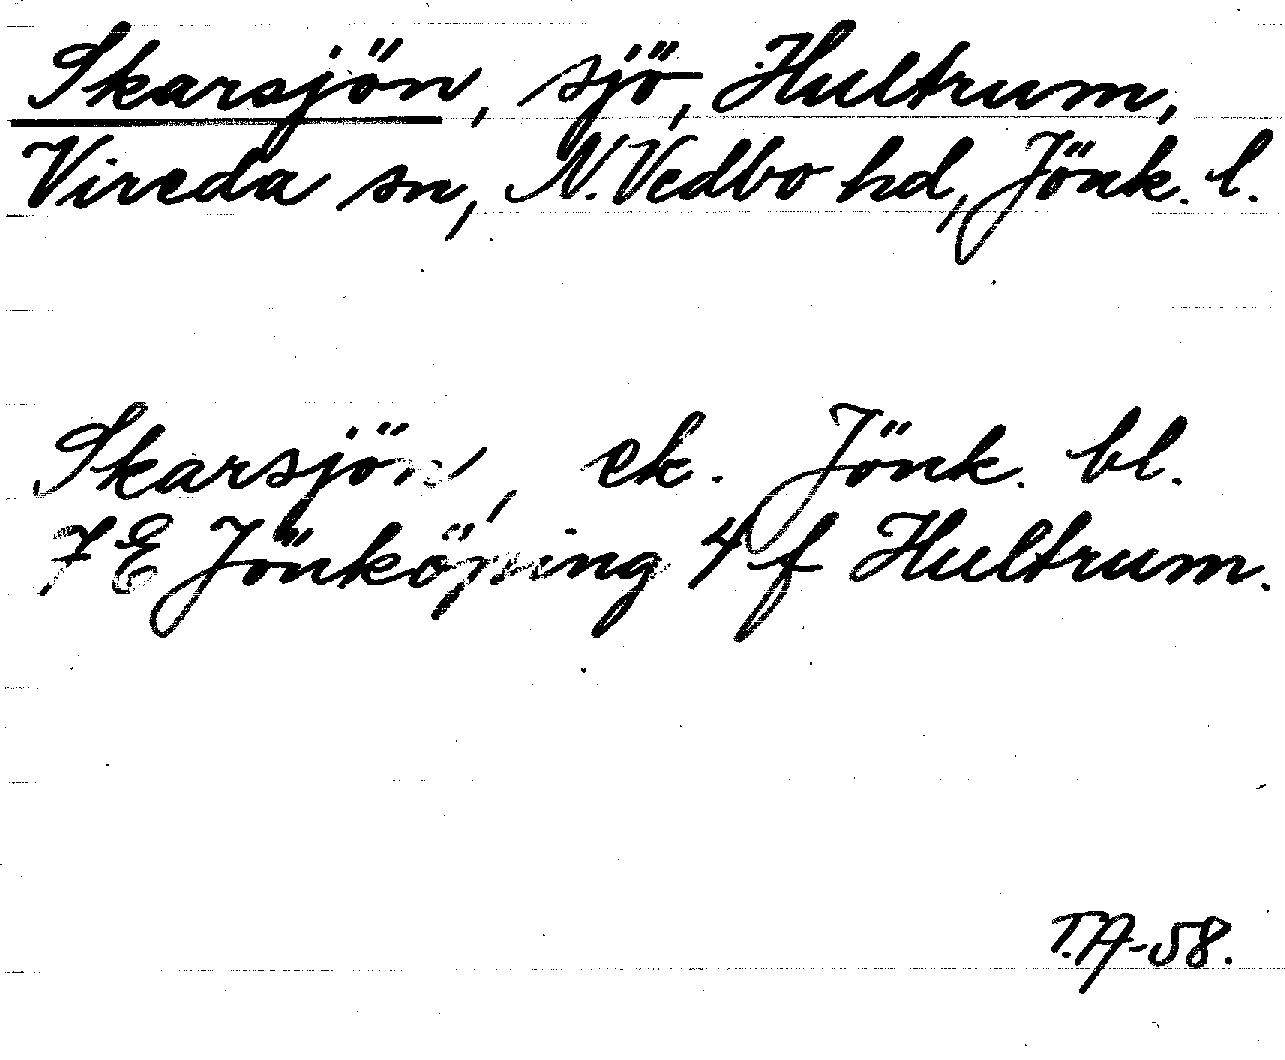 Skarsjön, sjö, Hultrum,
Vireda sn, N. Vedbo hd, Jönk. l.
Skarsjön, ek. Jönk. bl.
7E Jönköping 4 f Hultrum.
T.A-58.